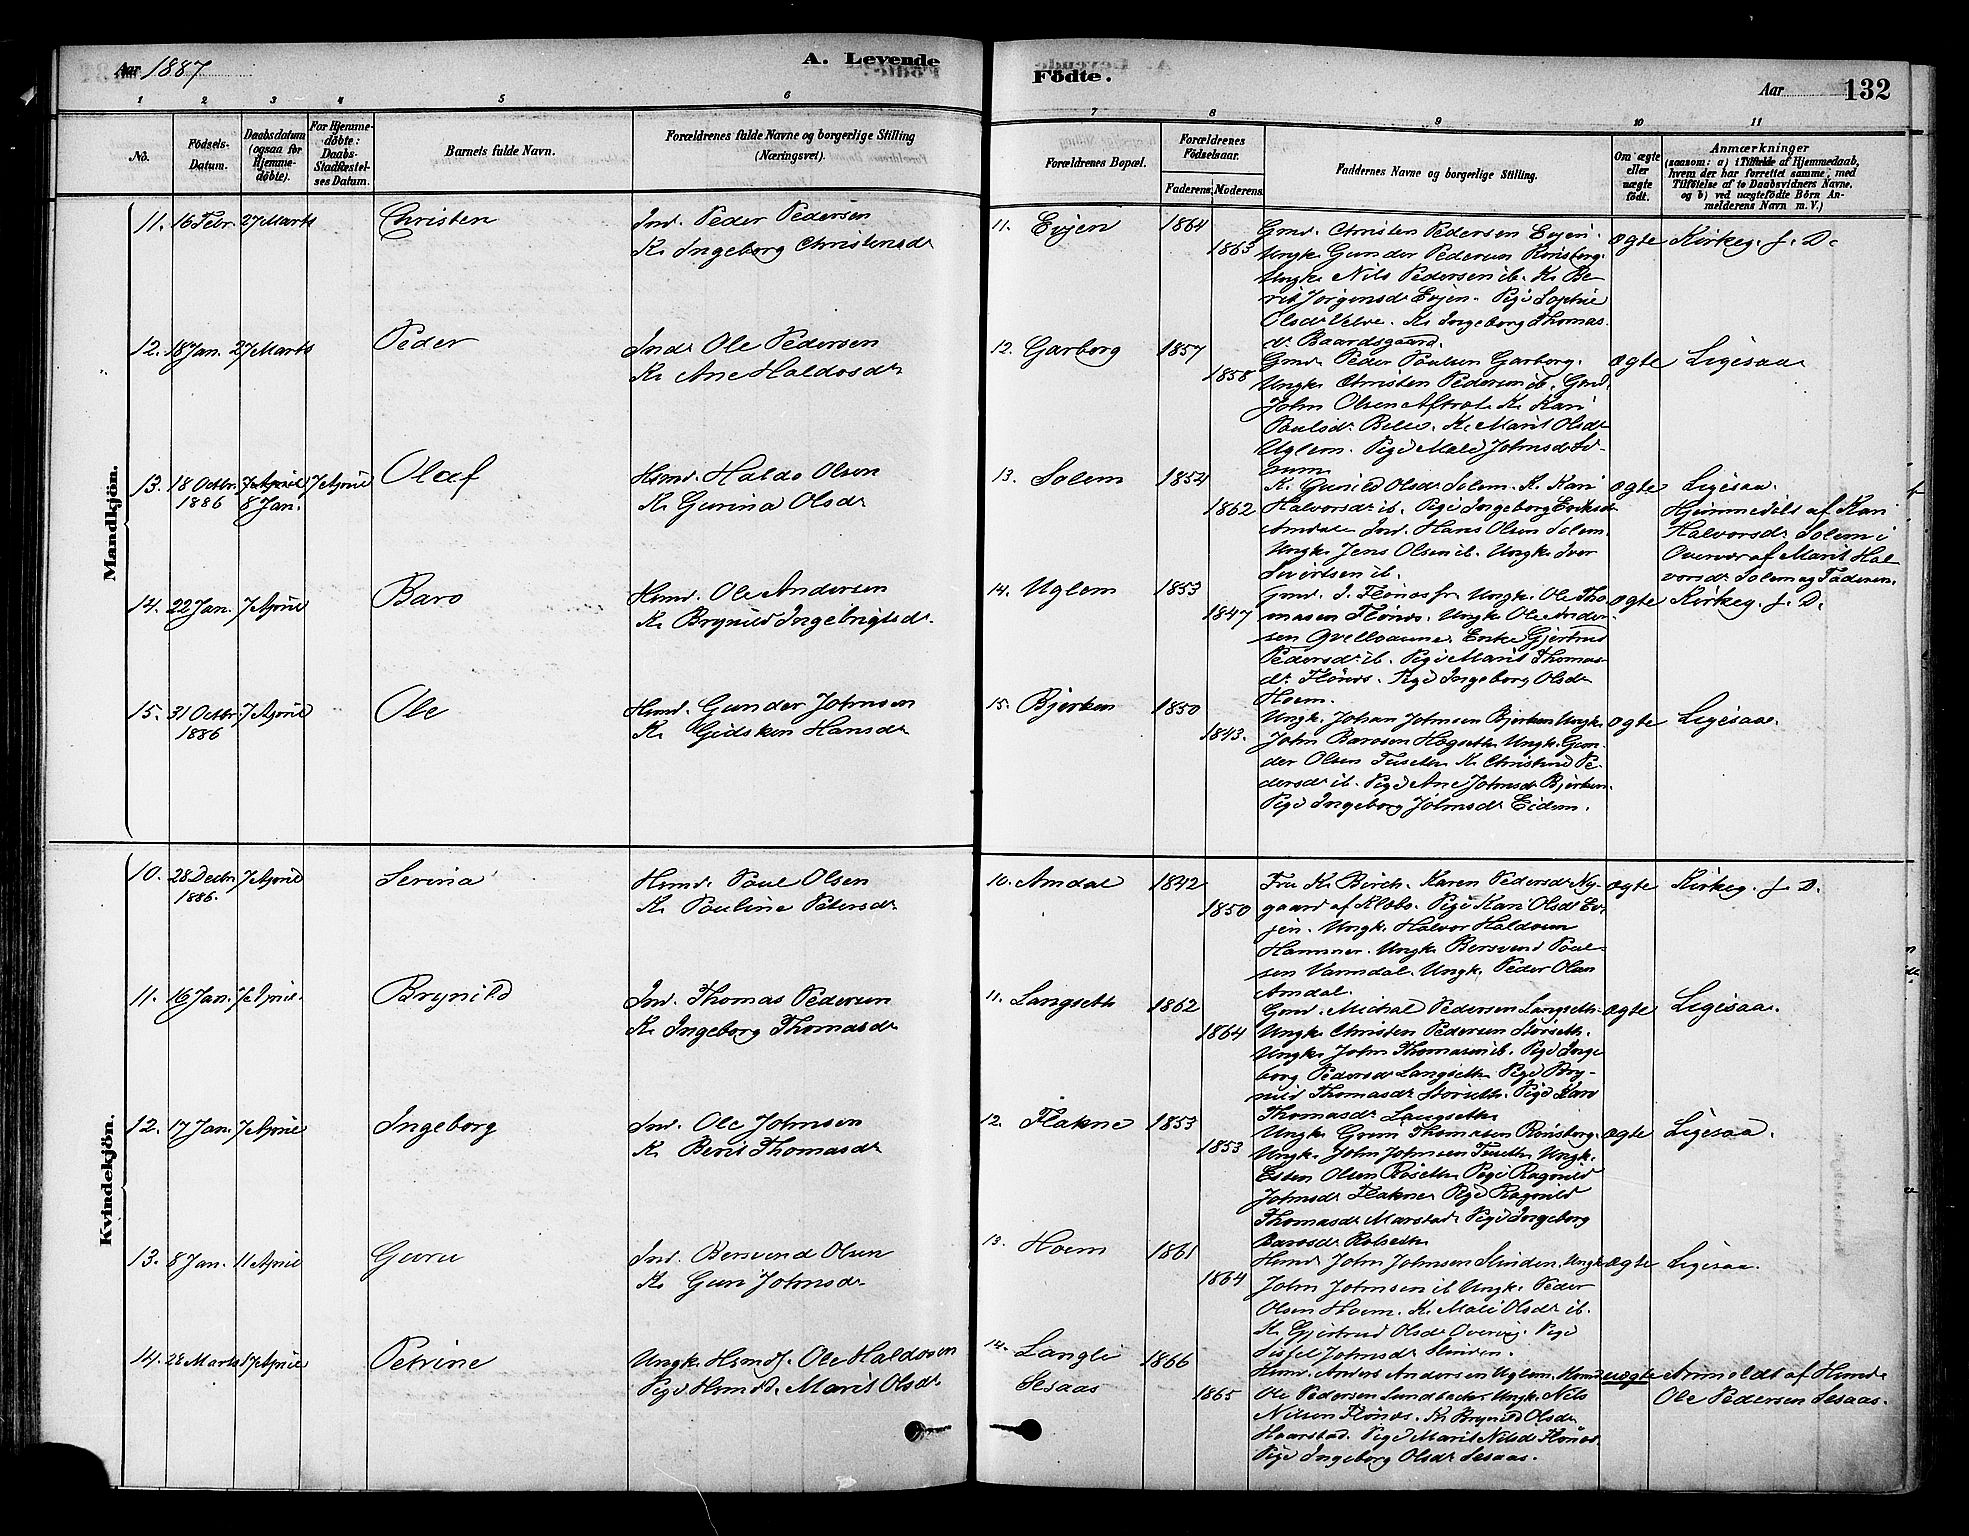 Aar 1887
A. Levende
Födte.
Aar 132
1 2 3 4 5 6 7 8 9 10 11
No.
Födsels-
Datum.
Daabsdatum
(ogsaa for
Hjemme-
döbte).
For Hjemme-
döbte:
Daabs-
Stadfæstel-
ses Datum.
Barnets fulde Navn.
Forældrenes fulde Navne og borgerlige Stilling
(Næringsvei).
Forældrenes Bopæl.
Forældrenes
Födselsaar.
Faderens. Moderens.
Faddernes Navne og borgerlige Stilling.
Om ægte
eller
uægte
födt.
Anmærkninger
(saasom: a) i Tilfælde af Hjemmedaab,
hvem der har forrettet samme, med
Tilföielse af to Daabsvidners Navne,
og b) ved uægtefödte Börn An-
melderens Navn m. V.)
Mandkjön.
11. 16 Febr. 27 Marts Christen
Ind. Peder Pedersen
K. Ingeborg Christensdr
11. Evjen 1864 1863
Gmd. Christen Pedersen Evjen.
Ungk. Gunder Pedersen Rönsberg.
Ungk. Nils Pedersen ib. K. Be-
rit Jörgensdr Evjen. Pige Sophie
Olsdr Velve. K. Ingeborg Thomas-
dr Baardsgaard.
ægte Kirkeg. f. D.
12. 18 Jan. 27 Marts Peder
Indr Ole Pedersen
K. Ane Haldosdr
12. Garberg 1857 1858
Gmd. Peder Paulsen Garberg.
Ungk. Christen Pedersen ib. Gmd.
John Olsen Aftret. K. Kari
Paulsdr Bell. K. Marit Olsdr
Uglem. Pige Mali Johnsdr
ægte Ligesaa.
13. 18 Octbr. 1886 7 April 8 Jan. 7 April Olaf
Hsmd. Haldo Olsen
K. Gurina Olsdr
13. Solem 1854 1862
K. Gunild Olsdr Solem. K. Kari
Halvorsdr ib. Pige Ingeborg Eriksdr
Amdal. Ind. Hans Olsen Solem.
Ungk. Jens Olsen ib. Ungk. Iver
Sivertsen ib.
ægte Ligesaa.
Hjemmedöbt af Kari
Halvorsdr Solem i
Overvær af Marit Hal-
vorsdr Solem og Faderen.
14. 22 Jan. 7 April Baro
Hsmd. Ole Andersen
K. Brynild Ingebrigtsdr.
14. Uglem 1853 1847
Gmd. J. Flönes fr. Ungk. Ole Tho-
masen Flönes. Ungk. Ole Ander-
sen Qvelloaune. Enke Gjertrud
Pedersdr ib. Pige Marit Thomas-
dr Flönes. Pige Ingeborg Olsdr
Hoem.
ægte Kirkeg. f. D.
15. 31 Octbr 1886 7 April Ole
Hsmd. Gunder Johnsen
K. Gidsken Hansdr
15. Bjerken 1850 1843.
Ungk. Johan Johnsen Bjerken Ungk.
John Barosen Hogseth. Ungk. Gun-
der Olsen Tuseth. K. Christine Pe-
dersdr ib. Pige Ane Johnsdr Bjerken.
Pige Ingeborg Johnsdr Eidem.
ægte Ligesaa.
Kvindekjön.
10. 28 Decbr. 1886. 7 April Serina
Hsmd. Paul Olsen
K. Pauline Petersdr
10. Amdal 1842 1850
Fru K. Birch. Karen Pedersdr Ny-
gaard af Klæbo. Pige Kari Olsdr Ev-
jen. Ungk. Halvor Haldosen
Hammer. Ungk. Bersvend Paul-
sen Varmdal. Ungk. Peder Olsen
Amdal.
ægte Kirkeg. f. D.
11. 16 Jan. 7 April. Brynild
Ind. Thomas Pedersen
K. Ingeborg Thomasdr
11. Langseth 1862 1864
Gmd. Michal Pedersen Langseth.
Ungk. Christen Pedersen Storseth.
Ungk. John Thomasen ib. Pige Inge-
borg Pedersdr Langseth. Pige Bry-
nild Thomasdr Storseth. Pige
Thomasdr Langseth.
ægte Ligesaa.
12. 17 Jan. 7 April Ingeborg
Ind. Ole Johnsen
K. Berit Thomasdr
12. Flakne 1853 1853
Ungk. Thomasen Rönsberg.
Ungk. John Johnsen Tuseth. Ungk.
Esten Olsen Röseth. Pige Ragnild
Johnsdr Flakne. Pige Ragnild
Thomasdr Marstad. Pige Ingeborg
Barosdr Rolseth.
ægte Ligesaa.
13. 8 Jan. 11 April Guru
Ind. Bersvend Olsen
K. Guri Johnsdr
13. Hoem 1861 1864
Hsmd. John Johnsen Slinden. Ungk.
John Johnsen ib. Ungk. Peder
Olsen Hoem. K. Mali Olsdr ib.
K. Gjertrud Olsdr Overvig. Pige
Sissel Johnsdr Slinden.
ægte Ligesaa.
14. 28 Marts 17 April Petrine
Ungk. Hsmdf. Ole Haldosen
Pige Hsmdd. Marit Olsdr
14. Langli
Sesaas
1866 1865
Hsmd. Anders Andersen Uglem. Hsmd.
Ole Pedersen Lundbakke. Ungk. Nils
Nilsen Flönes. K. Brynild Olsdr
Haarstad. Pige Marit Nilsdr Flönes.
Pige Ingeborg Olsdr Sesaas.
uægte Anmeldt af Hsmd.
Ole Pedersen Sesaas.